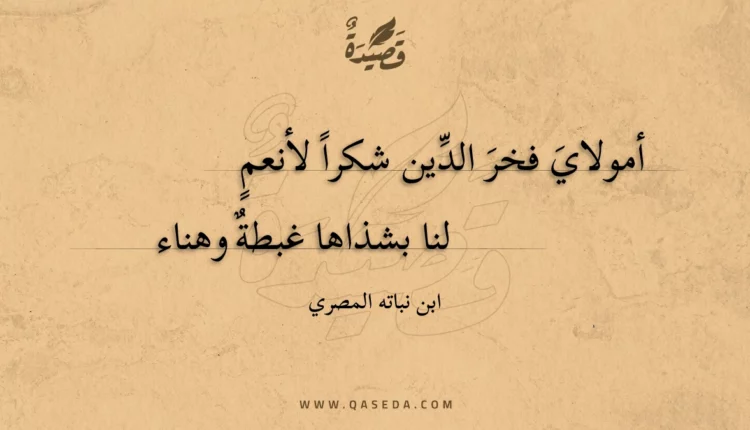 قَصِيْدَةٌ
أمولايَ فخرَ الدِّين شكراً لأنعمٍ
لنا بشذاها غبطةٌ وهناء
ابن نباته المصري
WWW.QASEDA.COM